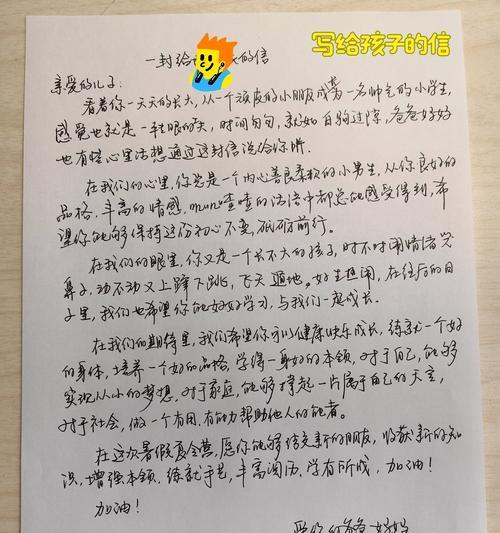 写给孩子的信
一封给 的信
亲爱的儿子:
看着你一天天的长大,从一个顽皮的小朋友成为一名帅气的小学生,
感觉也就是一转眼的事,时间匆匆,就如白驹过隙,爸爸妈妈
也有些心里话想通过这封信说给你听。
在我们的心里,你总是一个内心善良柔软的小男生,从你良好的
品格,丰富的情感, 喳喳的话语中都总能感受得到,希
望你能够保持这份初心不变,砥砺前行。
在我们的眼里,你又是一个长不大的孩子,时不时闹情绪哭
鼻子,动不动又上蹿下跳,飞天遁地,好生热闹,在往后的日
子里,我们也希望你能好好学习,与我们一起成长。
在我们的期待里,我们希望你可以健康快乐成长,练就一个好
的身体,培养一个好的品格,学得一身好的本领,对于自己,能够
实现从小的梦想,对于家庭,能够撑起一片属于自己的天空,
对于社会,做一个有用,有能力帮助他人的能者。
在这次暑假夏令营,愿你能够结交新的朋友,收获新的知
识,增强本领,练就手艺,丰富阅历,学有所成,加油!
加油!
爱你的爸爸妈妈